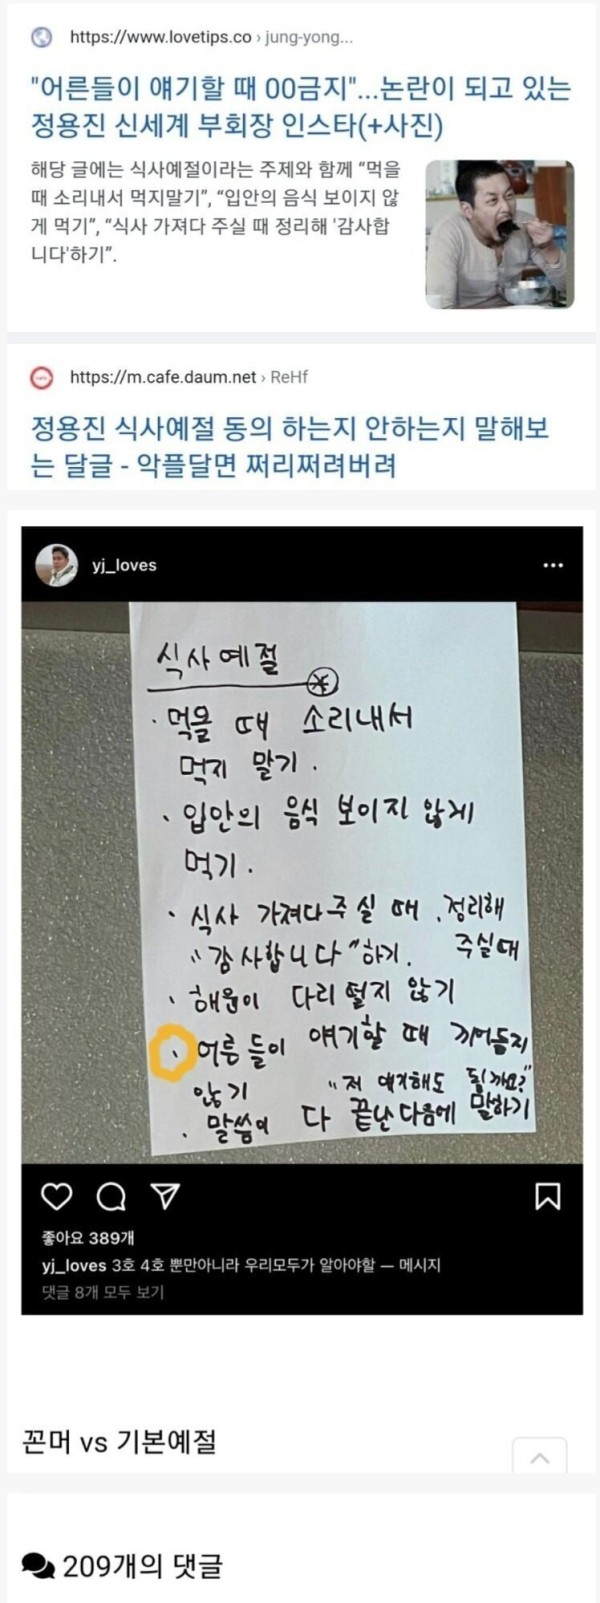 https://www.lovetips.co › jung-yong...
"어른들이 얘기할 때 00금지"...논란이 되고 있는
정용진 신세계 부회장 인스타(+사진)
해당 글에는 식사예절이라는 주제와 함께 “먹을
때 소리내서 먹지말기”, “입안의 음식 보이지 않
게 먹기”, “식사 가져다 주실 때 정리해 '감사합
니다'하기”.
https://m.cafe.daum.net › ReHf
정용진 식사예절 동의 하는지 안하는지 말해보
는 달글 - 악플달면 쩌리쩌려버려
yj_loves
식사예절
· 먹을 때 소리내서
먹지 말기.
· 입안의 음식 보이지 않게
먹기.
· 식사 가져다 주실 때, 정리해
주실때
"감사합니다"하기.
· 해윤이 다리 떨지 않기
· 어른들이 얘기할 때 끼어들지
않기 "저 얘기해도 될까요?"
· 말씀이 다 끝난다음에 말하기
좋아요 389개
yj_loves 3호 4호 뿐만아니라 우리모두가 알아야할 — 메시지
댓글 8개 모두 보기
꼰머 vs 기본예절
209개의 댓글